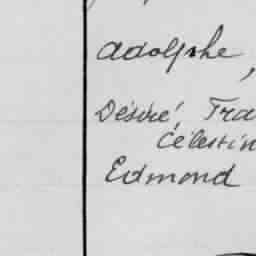 Adolphe,
Désiré, Tra
Célestin
Edmond